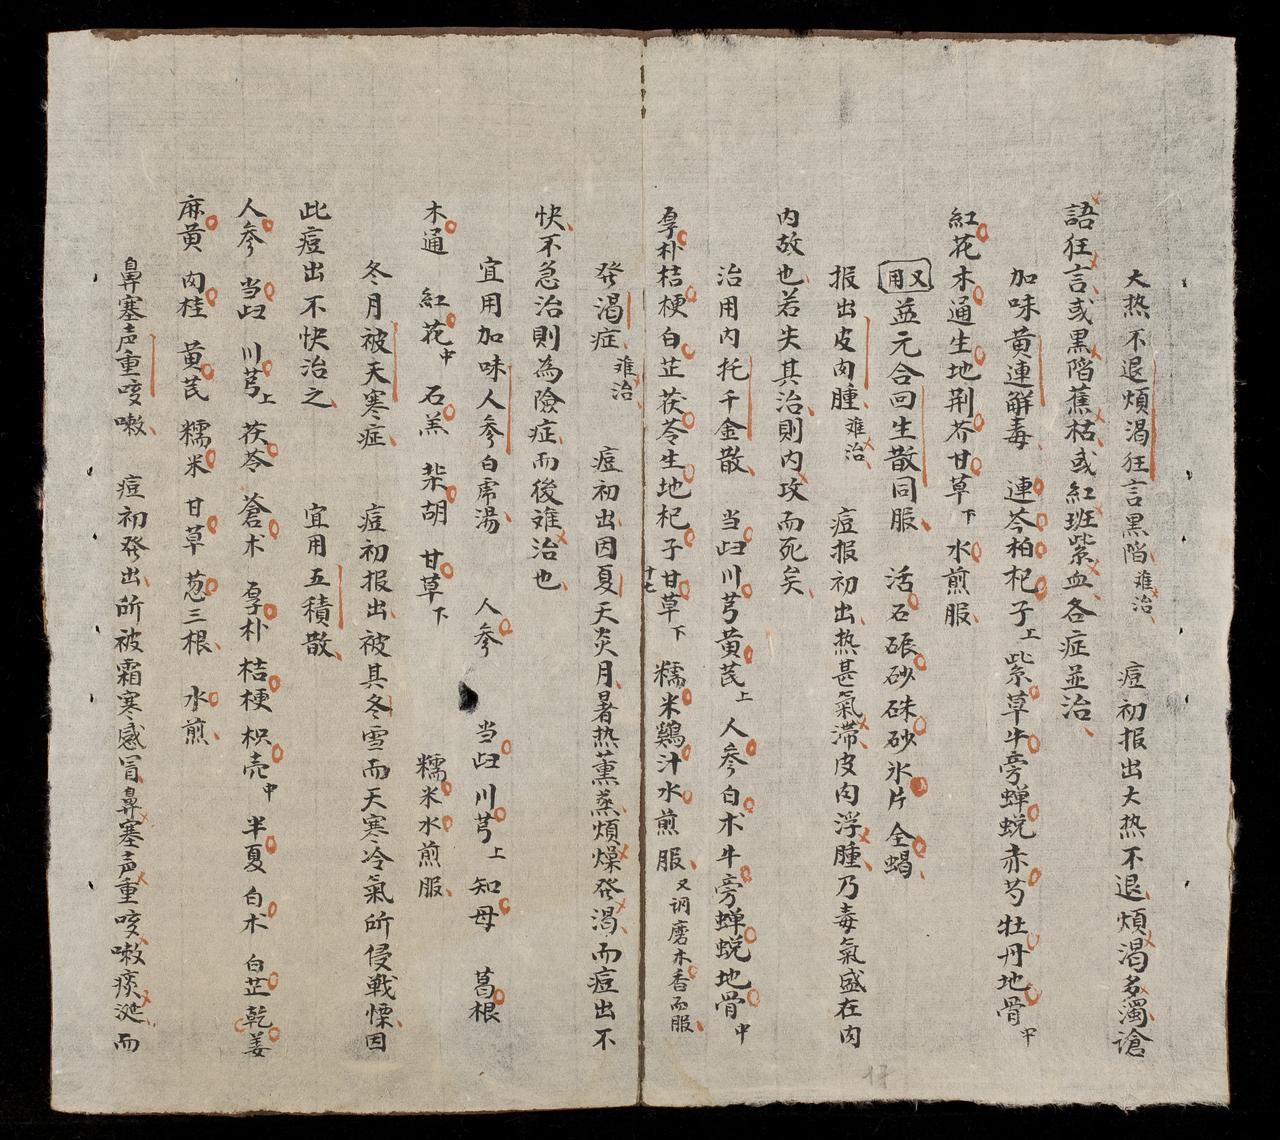 大热不退煩渴狂言黑陷难治　痘初报出大热不退煩渴多濁谵
語狂言或黒陷蕉枯或紅班紫血各症並治
加味黄連解毒　連芩柏杞子上紫草牛旁蝉蜕赤芍牡丹地骨中
紅花木通生地荆芥甘草下水煎服
又用益元合回生散同服　活石硍砂硃砂氷片全蝎
报出皮肉腫难治　痘报初出热甚氣滞皮肉浮腫乃毒氣盛在肉
内故也若失其治則内攻而死矣
治用内托千金散　当归川芎黄芪上人参白术牛旁蝉蜕地骨中
厚朴桔梗白芷茯苓生地杞子甘草下糯米鷄汁水煎服又调磨木香而服
十七
发渴症难治　痘初出因夏天炎月暑热薰蒸煩燥发渴而痘出不
快不急治則為險症而後难治也
宜用加味人參白虎湯　人參　当归川芎上知母　葛根
木通　紅花中　石羔　柴胡　甘草下　糯米水煎服
冬月被天寒症　痘初报出被其冬雪而天寒冷氣所侵戰慄因
此痘出不快治之　宜用五積散
人參　当归　川芎上　茯苓　蒼术　厚朴　桔梗　枳壳中　半夏　白术　白芷乾姜
麻黄　肉桂　黄芪　糯米　甘草　葱三根　水煎
鼻塞声重咳嗽　痘初发出所被霜寒感冒鼻塞声重咳嗽痰涎而
17